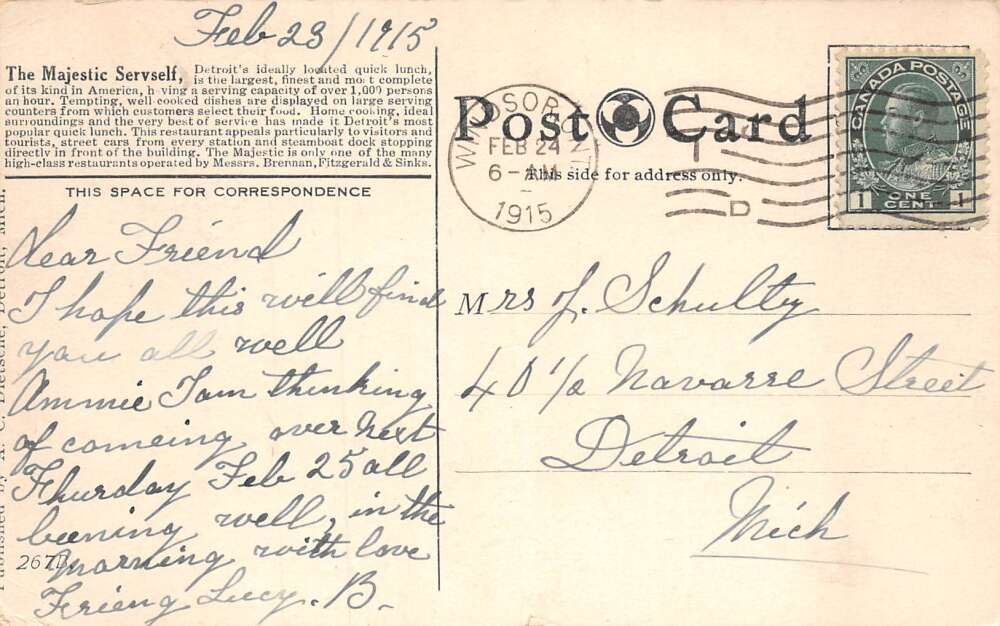 Feb 23/1915
The Majestic Servself, Detroit's ideally located quick lunch,
is the largest, finest and most complete
of its kind in America, having a serving capacity of over 1,000 persons
an hour. Tempting, well-cooked dishes are displayed on large serving
counters from which customers select their food. Home cooking, ideal
surroundings and the very best of service has made it Detroit's most
popular quick lunch. This restaurant appeals particularly to visitors and
tourists, street cars from every station and steamboat dock stopping
directly in front of the building. The Majestic is only one of the many
high-class restaurants operated by Messrs. Brennan, Fitzgerald & Sinks.
THIS SPACE FOR CORRESPONDENCE
Dear Friend
I hope this will find
you all well
Ammie I am thinking
of comeing over next
Thurday Feb 25 all
beening well, in the
Morning with love
Frieng Lucy. B.
267D.
Published by A. C. Dietsche, Detroit, Mich.
Post Card
This side for address only.
WINDSOR ONT
FEB 24
6-AM
1915
D
CANADA POSTAGE
1 ONE CENT 1
Mrs J. Schulty
401/2 Navarre Street
Detroit
Mich